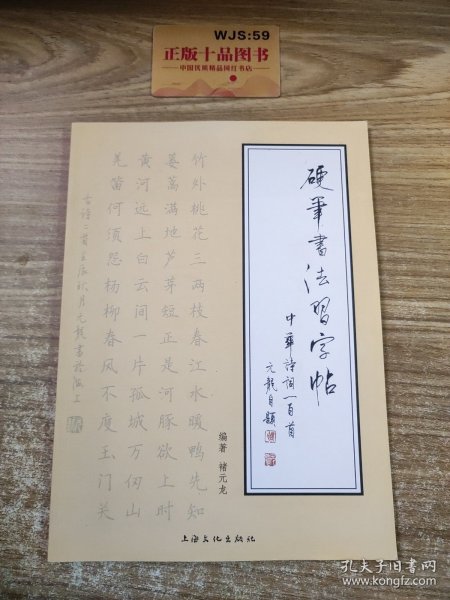 WJS:59
正版十品图书
中国优质精品网红书店
硬筆書法習字帖
中華詩词一百首
元龍自題
竹外桃花三两枝春江水暖鸭先知
蒌蒿满地芦芽短正是河豚欲上时
黄河远上白云间一片孤城万仞山
羌笛何须怨杨柳春风不度玉门关
编著 褚元龙
上海文化出版社
孔夫子旧书网
www.kongfz.com